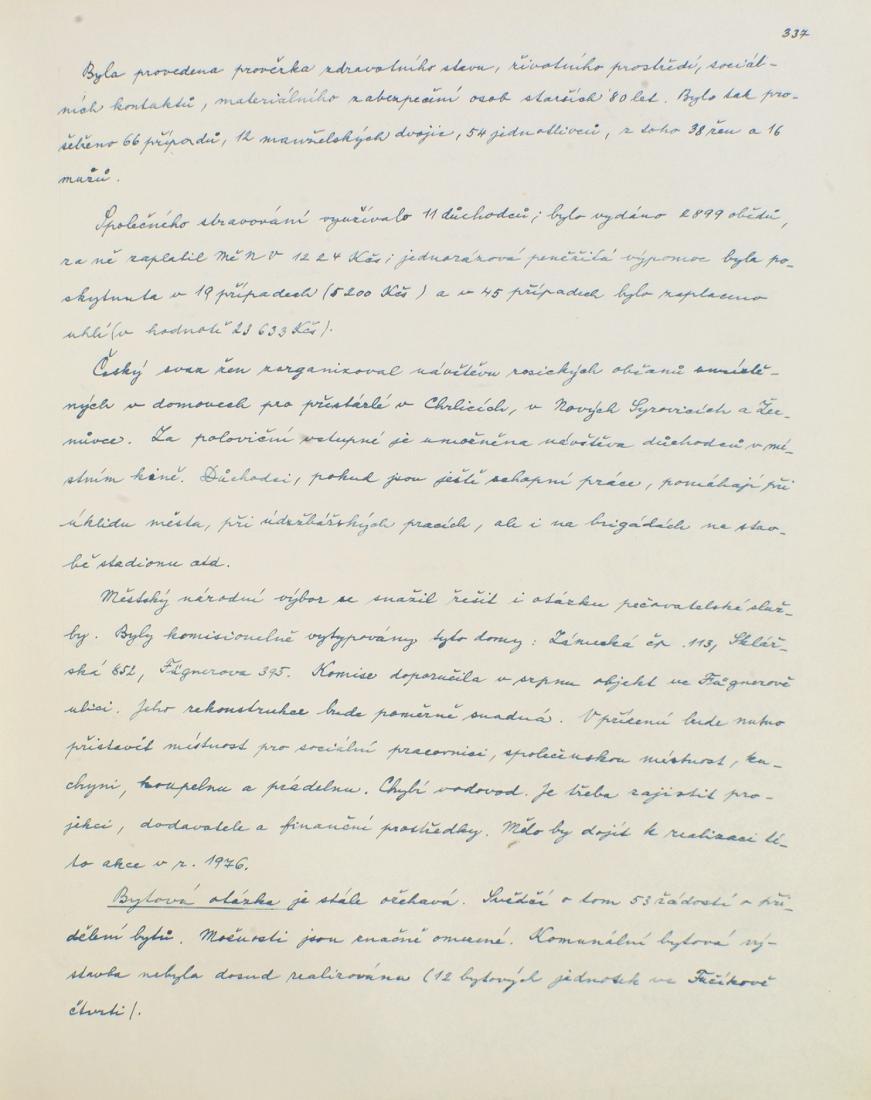 337
Byla provedena prověrka zdravotního stavu, životního prostředí, sociál-
ních kontaktů, materiálního zabezpečení osob starších 80 let. Bylo tak pro-
šetřeno 66 případů, 12 manželských dvojic, 54 jednotlivců, z toho 38 žen a 16
mužů.
Společného stravování využívalo 11 důchodců; bylo vydáno 2899 obědů,
za ně zaplatil MěNV 1224 Kčs; jednorázová peněžitá výpomoc byla po-
skytnuta v 19 případech (5200 Kčs) a v 45 případech bylo zaplaceno
uhlí (v hodnotě 23 633 Kčs).
Český svaz žen zorganizoval návštěvu rosických občanů umístě-
ných v domovech pro přestárlé v Chrlicích, v Nových Syrovicích a Žer-
nůvce. Za poloviční vstupné je umožněna návštěva důchodců v mí-
stním kině. Důchodci, pokud jsou ještě schopni práce, pomáhají při
úklidu města, při údržbářských pracích, ale i na brigádách na stav-
bě stadionu atd.
Městský národní výbor se snažil řešit i otázku pečovatelské služ-
by. Byly komisionelně vytypovány tyto domy: Zámecká čp. 113, Sklář-
ská 652, Fügnerova 395. Komise doporučila v srpnu objekt ve Fügnerově
ulici. Jeho rekonstrukce bude poměrně snadná. V přízemí bude nutno
přistavit místnost pro sociální pracovnici, společenskou místnost, ku-
chyni, koupelnu a prádelnu. Chybí vodovod. Je třeba zajistit pro-
jekci, dodavatele a finanční prostředky. Mělo by dojít k realizaci té-
to akce v r. 1976.
Bytová otázka je stále ožehavá. Svědčí o tom 53 žádostí o při-
dělení bytů. Možnosti jsou značně omezené. Komunální bytová vý-
stavba nebyla dosud realizována (12 bytových jednotek ve Fučíkově
čtvrti).